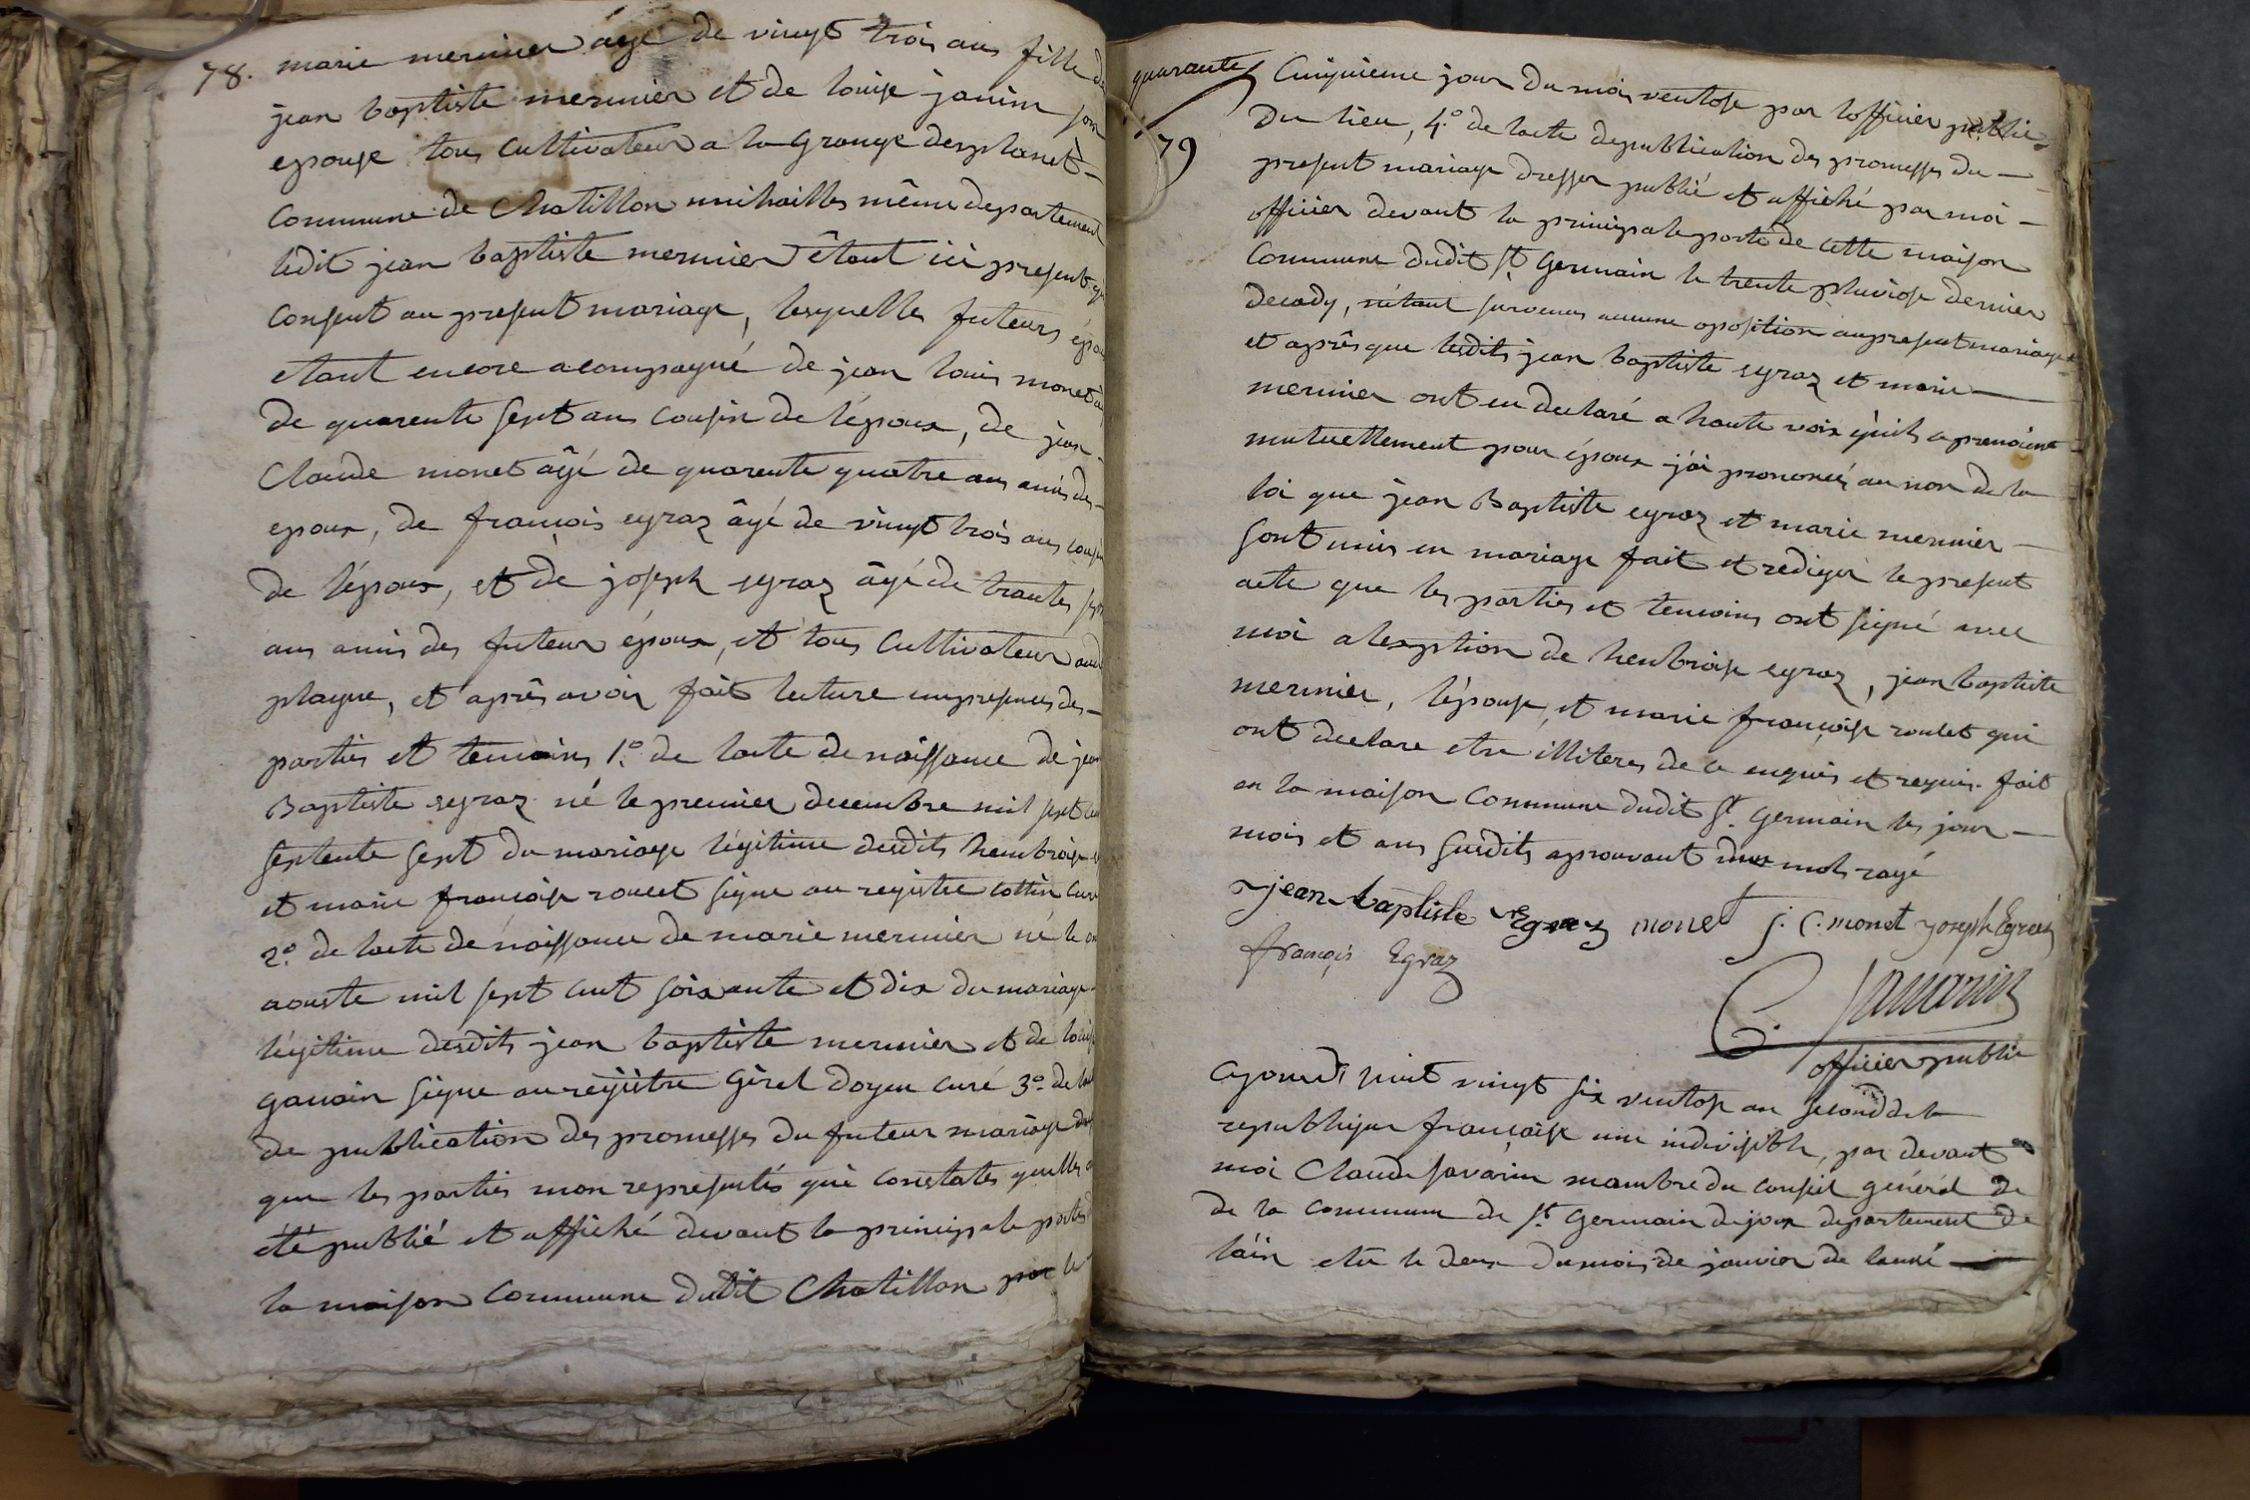 78.
marie mermier agé de vingt trois ans fille de
jean baptiste mermier et de louise janin son
epouse tous cultivateur a la grange desplanet
commune de Chatillon michailles même departement
ledit jean baptiste mermier étant ici present qui
consent au present mariage, lesquelles futeurs époux
etant encore acompagné de jean louis monet
de quarente sept ans cousin de lépoux, de jean
Claude monet âgé de quarente quatre ans amis des
epoux, de françois egraz âgé de vingt trois ans cousin
de lépoux, et de joseph egraz âgé de trante sept
ans amis des futeur époux, et tous Cultivateur
plagne, et après avoir fait lecture en presences des
parties et temoins 1.º de lacte de naissance de jean
Baptiste egraz né le premier decembre mil sept cent
septente sept du mariage légitime desdits hembroise
et marie françoise roulet signe au registre cottin curé
2.º de lacte de naissance de marie mermier né le
aouste mil sept cent soixante et dix du mariage
légitime desdits jean baptiste mermier et de louise
gavoin signe au régistre Girel doyen curé 3.º de
de publication des promesses du futeur mariage
que les parties mon representés qui constates quelles
été publié et affiché devant la principale portes
la maison commune dudit Chatillon par le
quarante
79
Cinquieme jour du mois ventose par lofficier public
du lieu, 4.º de lacte depublication des promesses du
present mariage dresser publié et affiché par moi
officier devant la principale porte de cette maison
Commune dudit St Germain le trente pluviose dernier
decady, nétant survenus aucune oposition aupresent mariage
et après que lesdits jean baptiste egraz et marie
mermier ont eu declaré a haute voix quils ce prenoient
mutuellement pour époux j'ai prononcés au non de la
loi que jean Baptiste egraz et marie mermier
sont unis en mariage fait et rediger le present
acte que les parties et temoins ont signé avec
moi alexption de henbroise egraz, jean baptiste
mermier, lépouse, et marie françoise roulet qui
ont declare etre illiteres de ce enquis et requis. fait
en la maison Commune dudit St Germain les jour
mois et ans susdits aprouvant mots rayé
jean baptiste Egraz monet j. C. monet joseph Egraz
françois Egraz
C. Savarin
officier public
Cejourd huit vingt six ventose an second de la
republique françoise une indivisible, par devant
moi Claude Savarin mambre du conseil général de
de la Commune de St Germain dejoux departement de
láin elu le deux du mois de janvier de lanné